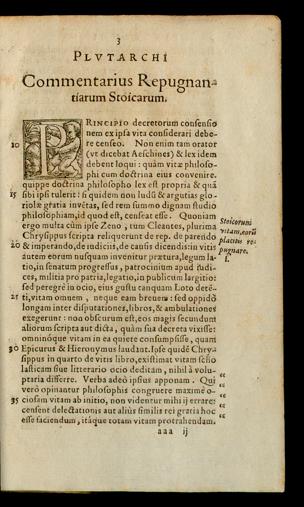 3
PLVTARCHI
Commentarius Repugnan-
tiarum Stoicarum.
PRINCIPIO decretorum consensio
nem ex ipsa vita considerari debe-
10 re censeo. Non enim tam orator
(vt dicebat Aeschines) & lex idem
debent loqui: quàm vitæ philoso-
phi cum doctrina eius convenire.
quippe doctrina philosopho lex est propria & quâ
15 sibi ipsi tulerit: si quidem non ludû & argutias glo-
riolæ gratia invẽtas, sed rem summo dignam studio
philosophiam, id quod est, censeat esse. Quoniam
ergo multa cùm ipse Zeno, tum Cleantes, plurima
Chrysippus scripta reliquerunt de rep. de parendo
20 & imperando, de iudiciis, de causis dicendis: in vitis
autem eorum nusquam invenitur prætura, legum la-
tio, in senatum progressus, patrocinium apud iudi-
ces, militia pro patria, legatio, in publicum largitio:
sed peregrè in ocio, eius gustu tanquam Loto detẽ-
25 ti, vitam omnem, neque eam brevem: sed oppidò
longam inter disputationes, libros, & ambulationes
exegerunt: non obscurum est, eos magis secundum
aliorum scripta aut dicta, quàm sua decreta vixisse:
omninòque vitam in ea quiete consumpsisse, quam
30 Epicurus & Hieronymus laudant. Ipse quidẽ Chry-
sippus in quarto de vitis libro, existimat vitam scho
lasticam siue litterario ocio deditam, nihil à volu-
ptaria differre. Verba adeò ipsius apponam. Qui
verò opinantur philosophis congruere maximè o-
35 ciosam vitam ab initio, non videntur mihi ij errare:
censent delectationis aut aliùs similis rei gratia hoc
esse faciendum, itáque totam vitam protrahendam.
Stoicorum
vitam, eorũ
placitis re-
pugnare.
1.
“
“
“
“
“
aaa ij